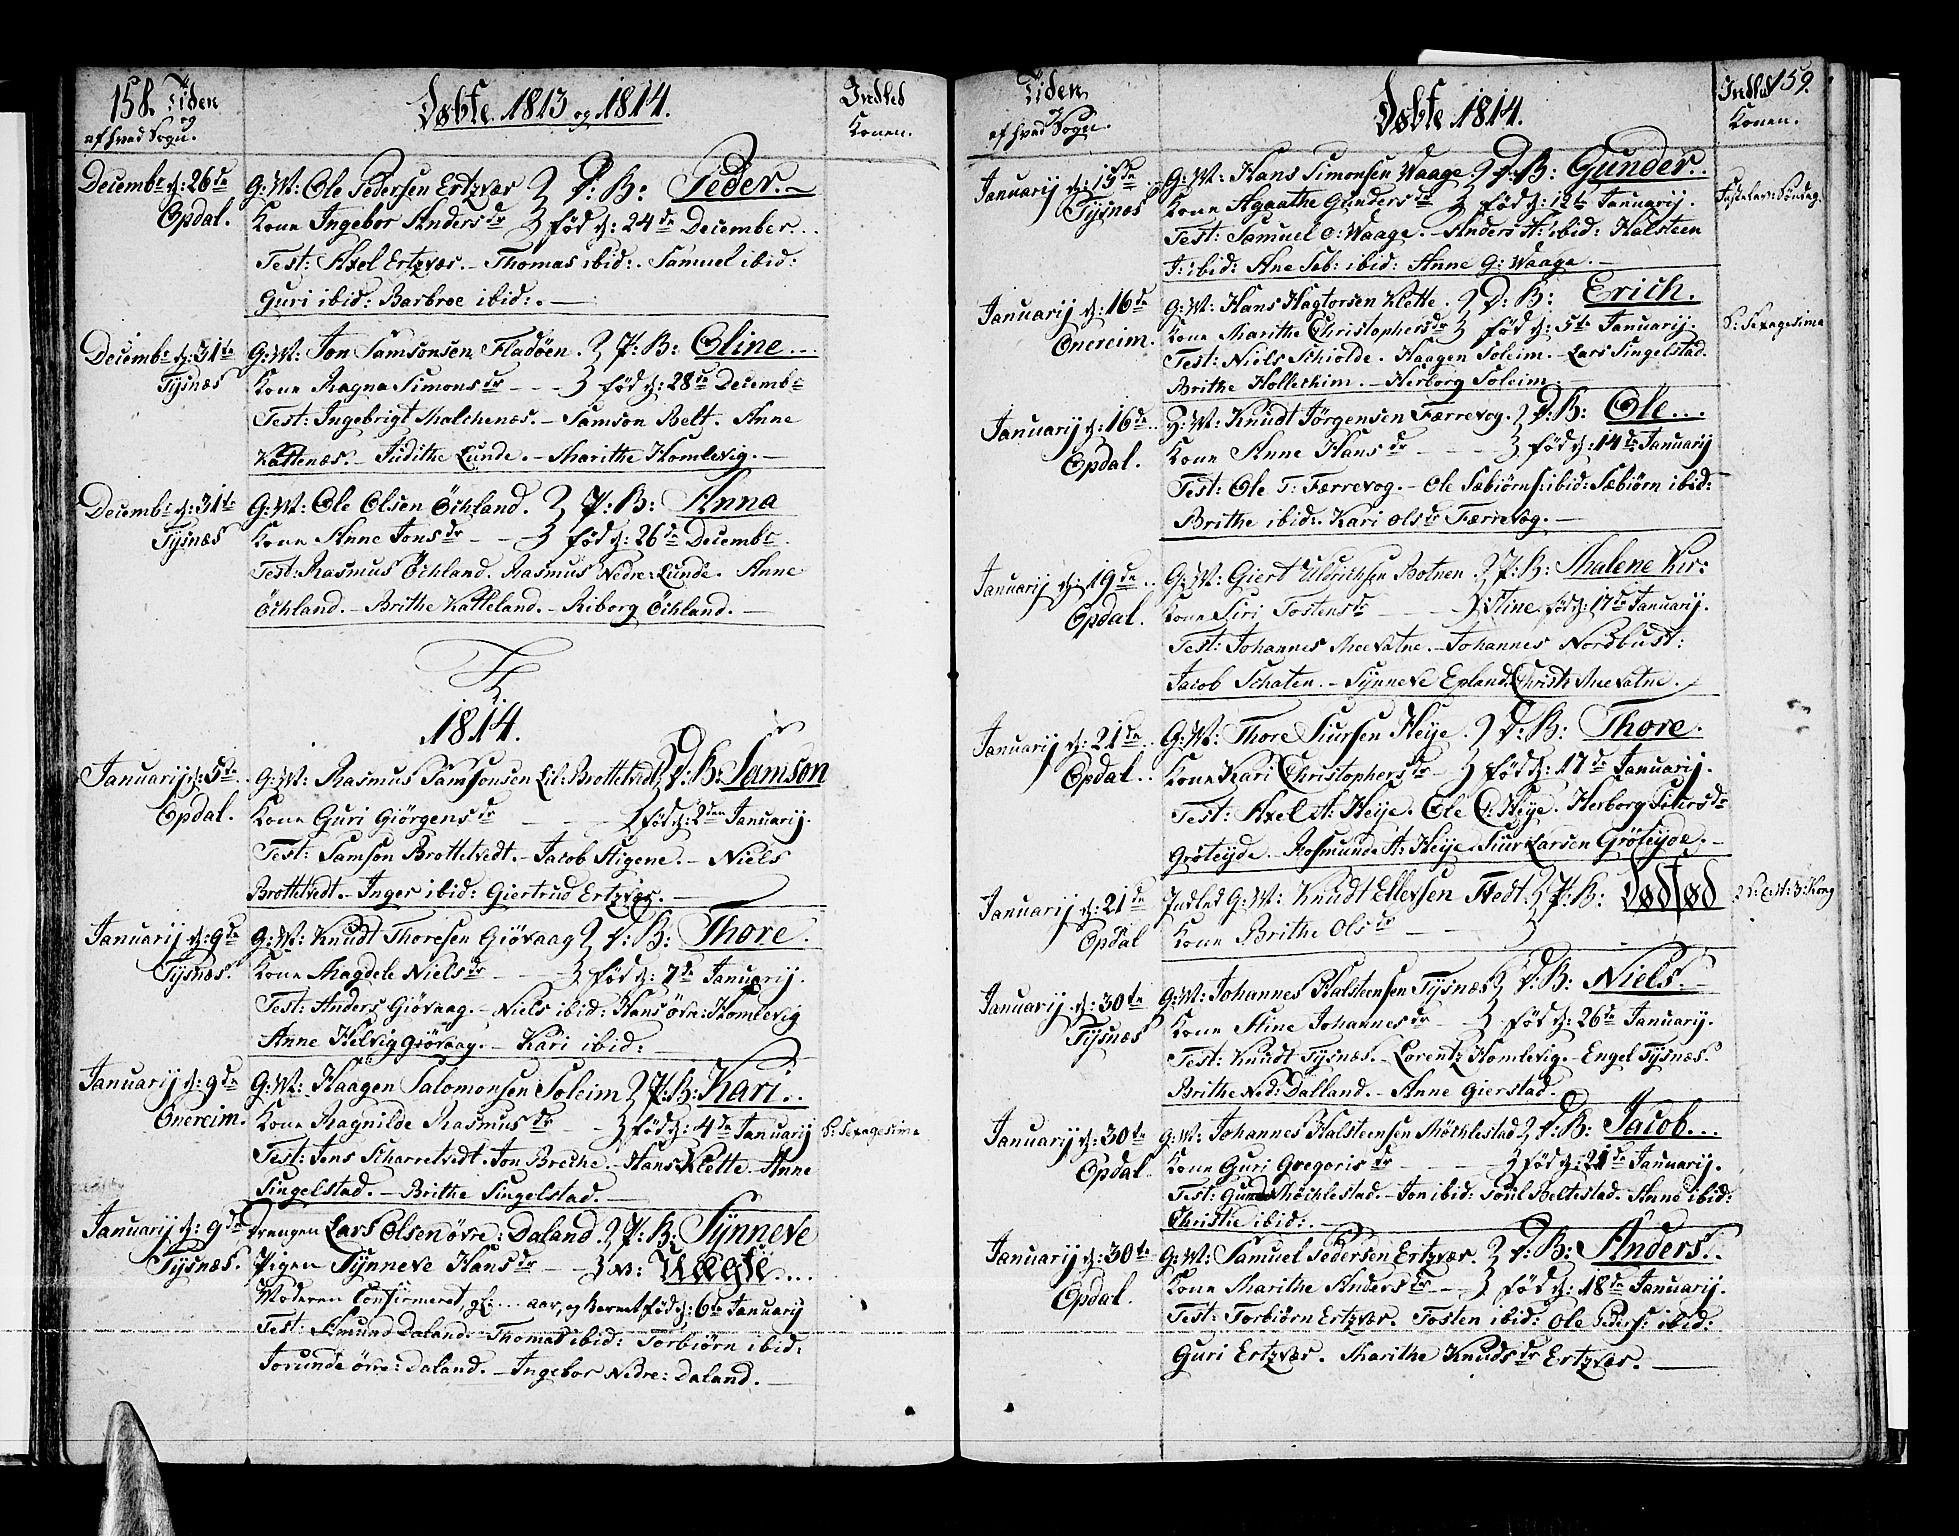 158. Tiden
og
af hvad Sogn.
Døbte 1813 og 1814.
Indled
Konen.
Decembr d: 26de
Opdal.
G: M: Ole Pedersen Ertzvær D: B: Peder.
Kone Ingebor Andersdr fød d: 24de December.
Test: Axel Ertzvær. Thomas ibid: Samuel ibid:
Guri ibid: Barbroe ibid:
Decembr d: 31te
Tysnæs
G: M: Jon Samsonsen Fladøen. P: B: Oline
Kone Ragna Simonsdr fød d: 28de Decembr
Test: Ingebrigt Malchenæs. Samson Belt. Anne
Kattenæs. Judithe Lunde. Marithe Homlevig.
Decembr d: 31te
Tysnæs
G: M: Ole Olsen Öchland. P: B: Anna
Kone Anne Jonsdr fød d: 26de Decembr.
Test: Rasmus Öchland. Rasmus Nedre: Lunde. Anne
Öchland. Brithe Katteland. Riborg Öchland.
1814.
Januarij d: 5te
Opdal.
G: M: Rasmus Samsonsen Lil: Brottetvedt D: B: Samson
Kone Guri Giörgensdr fød d: 2den Januarij.
Test: Samson Brottetvedt. Jacob Stigene. Niels
Brottetvedt. Inger ibid: Giertrud Ertzvær.
Januarij d: 9de
Tysnæs.
G: M: Knudt Thoresen Giövaag D: B: Thore.
Kone Magdele Nielsdr fød d: 7de Januarij.
Test: Anders Giövaag. Niels ibid: Hans övre: Homlevig
Anne Helvig Giövaag. Kari ibid:
Januarij d: 9de
Onereim.
G: M: Haagen Salomonsen Soleim P: B: Kari.
Kone Ragnilde Rasmusdr fød d: 4de Januarij
S: Sexagesima
Test: Jens Scharretvedt. Jon Breche. Hans Klette. Anne
Singelstad. Brithe Singelstad.
Januarij d: 9de
Tysnæs.
Drengen Lars Olsen övre: Daland. P: B: Synneve
Pigen Synneve Hansdr Uægte
Moderen Confirmeret, gl: ... aar, og Barnet fød d: 6te Januarij
Test: Amund Daland. Thomas ibid: Torbiörn ibid:
Jorunde övre: Daland. Ingebor Nedre: Daland.
Tiden
og
af hvad Sogn.
Døbte 1814.
Indled 159.
Konen.
Januarij d: 15de
Tysnæs
G: M: Hans Simonsen Waage D: B: Gunder.
Fastelav: Søndag.
Kone Agaathe Gundersdr fød d: 12te Januarij.
Test: Samuel O: Waage. Anders H: ibid: Halsteen
J: ibid: Ane Seb: ibid: Anne G: Waage.
Januarij d: 16de
Onereim.
G: M: Hans Hagtorsen Klette. D: B: Erich.
S: Sexagesima
Kone Marithe Christophersdr fød d: 5te Januarij.
Test: Niels Schiolde. Haagen Soleim. Lars Singelstad.
Brithe Hollekim. Herborg Soleim.
Januarij d: 16de
Opdal.
G: M: Knudt Jörgensen Færrevog. D: B: Ole
Kone Anne Hansdr fød d: 14de Januarij
Test: Ole T: Færrevog. Ole Sæbiörns: ibid: Sæbiörn ibid:
Brithe ibid. Kari Olsdr Færrevog.
Januarij d: 19de
Opdal.
G: M: Giert Uldrichsen Botnen. P: B: Malene Kir:
Kone Siri Tostensdr Stine fød d: 17de Januarij.
Test: Johannes Meevatne. Johannes Nordbust:
Jacob Schaten. Synneve Epland. Christi Meevatne.
Januarij d: 21de
Opdal.
G: M: Thore Siursen Heije. D: B: Thore.
Kone Kari Christophersdr fød d: 17de Januarij.
Test: Axel A: Heije. Ole O: Heije. Herborg Sjursdr
Gröteijde. Rosmunde A: Heije. Siur Larsen Gröteijde.
Januarij d: 21de
Opdal
Indled G: M: Knudt Ellevsen Stedt P: B: Dødfød
Kone Brithe Olsdr
Januarij d: 30te
Tysnæs
G: M: Johannes Halsteensen Tysnæs D: B: Niels.
Kone Stine Johannesdr fød d: 26de Januarij.
Test: Knudt Tysnæs. Lorentz Homlevig. Engel Tysnæs.
Brithe Ned: Dalland. Anne Gierstad.
Januarij d: 30te
Opdal.
G: M: Johannes Halsteensen Möchlestad D: B: Jacob.
Kone Guri Gregorisdr fød d: 21de Januarij.
Test: Gunder Möchlestad. Jon ibid: Poul Beltestad. Anne ibid:
Christie ibid:
Januarij d: 30te
Opdal.
G: M: Samuel Pedersen Ertzvær. D: B: Anders.
Kone Marithe Andersdr fød d: 18de Januarij.
Test: Torbiörn Ertzvær. Tosten ibid: Ole Peders: ibid:
Guri Ertzvær. Marithe Knudsdr Ertzvær.